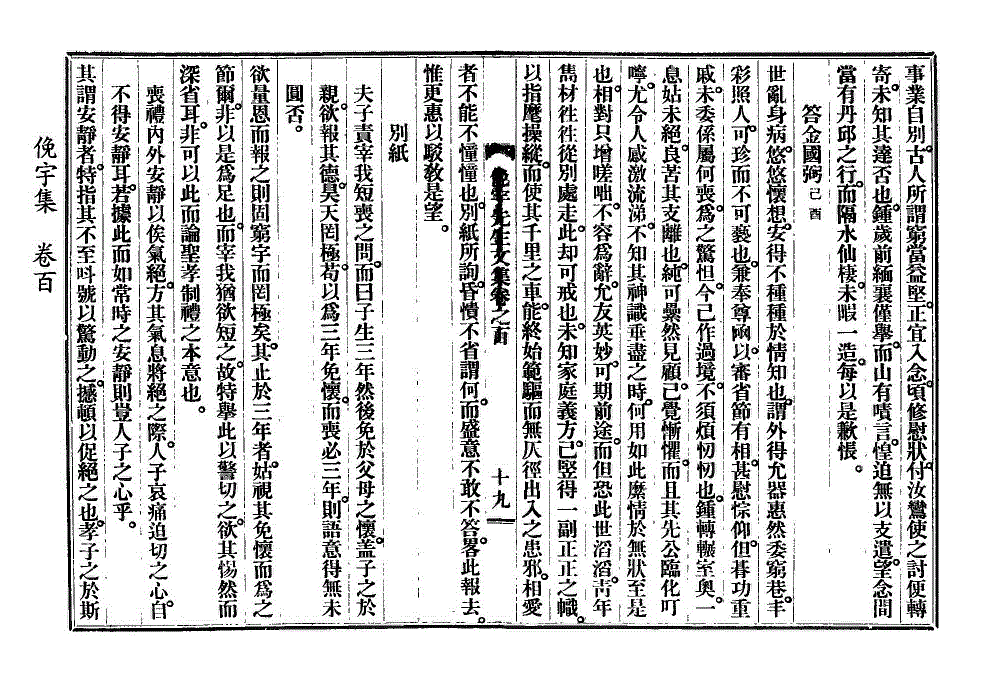 事業自別。古人所謂窮當益堅。正宜入念。頃修慰狀。付汝鸞使之討便轉
寄。未知其達否也。鍾歲前緬襄僅擧。而山有嘖言。惶迫無以支遣。望念間
當有丹邱之行。而隔水仙棲。未暇一造。每以是歉悵。
答金國弼 己酉
世亂身病。悠悠懷想。安得不種種於情知也。謂外得允器惠然委窮巷。丰
彩照人。可珍而不可褻也。兼奉尊函。以審省節有相。甚慰悰仰。但朞功重
戚。未委係屬何喪。爲之驚怛。今已作過境。不須煩忉忉也。鍾轉輾室奧。一
息姑未絶。良苦其支離也。純可櫐然見顧。已覺慚懼。而且其先公臨化叮
嚀。尤令人感激流涕。不知其神識垂盡之時。何用如此麽情於無狀至是
也。相對只增嗟咄。不容爲辭。允友英妙。可期前途。而但恐此世滔滔。靑年
雋材徃徃從別處走。此却可戒也。未知家庭義方。已竪得一副正正之幟。
以指麾操縱。而使其千里之車。能終始範驅而無仄徑出入之患邪。相愛
俛宇先生文集卷之百 十九
者不能不憧憧也。別紙所詢。昏憒不省謂何。而盛意不敢不答。畧此報去。
惟更惠以駁敎是望。
別紙
夫子責宰我短喪之問。而曰子生三年然後免於父母之懷。盖子之於
親。欲報其德。昊天罔極。苟以爲三年免懷。而喪必三年。則語意得無未
圓否。
欲量恩而報之則固窮宇而罔極矣。其止於三年者。姑視其免懷而爲之
節爾。非以是爲足也。而宰我猶欲短之。故特擧此以警切之。欲其惕然而
深省耳。非可以此而論聖孝制禮之本意也。
喪禮內外安靜以俟氣絶。方其氣息將絶之際。人子哀痛迫切之心。自
不得安靜耳。若據此而如常時之安靜則豈人子之心乎。
其謂安靜者。特指其不至呌號以驚動之。撼頓以促絶之也。孝子之於斯
俛宇集 卷百